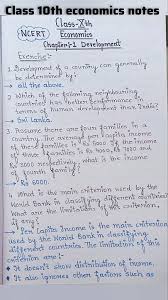 Class 10th economics notes
Class-Xth
NCERT
Economics
Chapter-1 Development
Exercise:-
1. Development of a country can generally
be determined by:
→ all the above.
2. Which of the following neighbouring
countries has better performance in
terms of human development than India?
→ Sri Lanka.
3. Assume there are four families in a
country. The average per capita income
of these families
→ Rs 6000.
4. What is the main criterion used by the
World Bank in classifying different
countries. What are the limitations of this
criterion, if any?
→ Per Capita Income is the main criterion
used by the World Bank in classifying
different countries. The limitations of this
criterion are:-
It doesn't show distribution of income.
It also ignores other factors such as